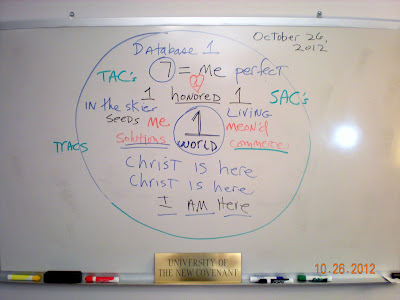 October 26,
2012
Database 1
7 = me perfect
TAC's
1 honored 1
SAC's
in the skier
LIVING
SEEDS me
meon'd
Solutions
1
WORLD
commerce
TRACS
Christ is here
Christ is here
I AM Here
UNIVERSITY OF
THE NEW COVENANT
10.26.2012